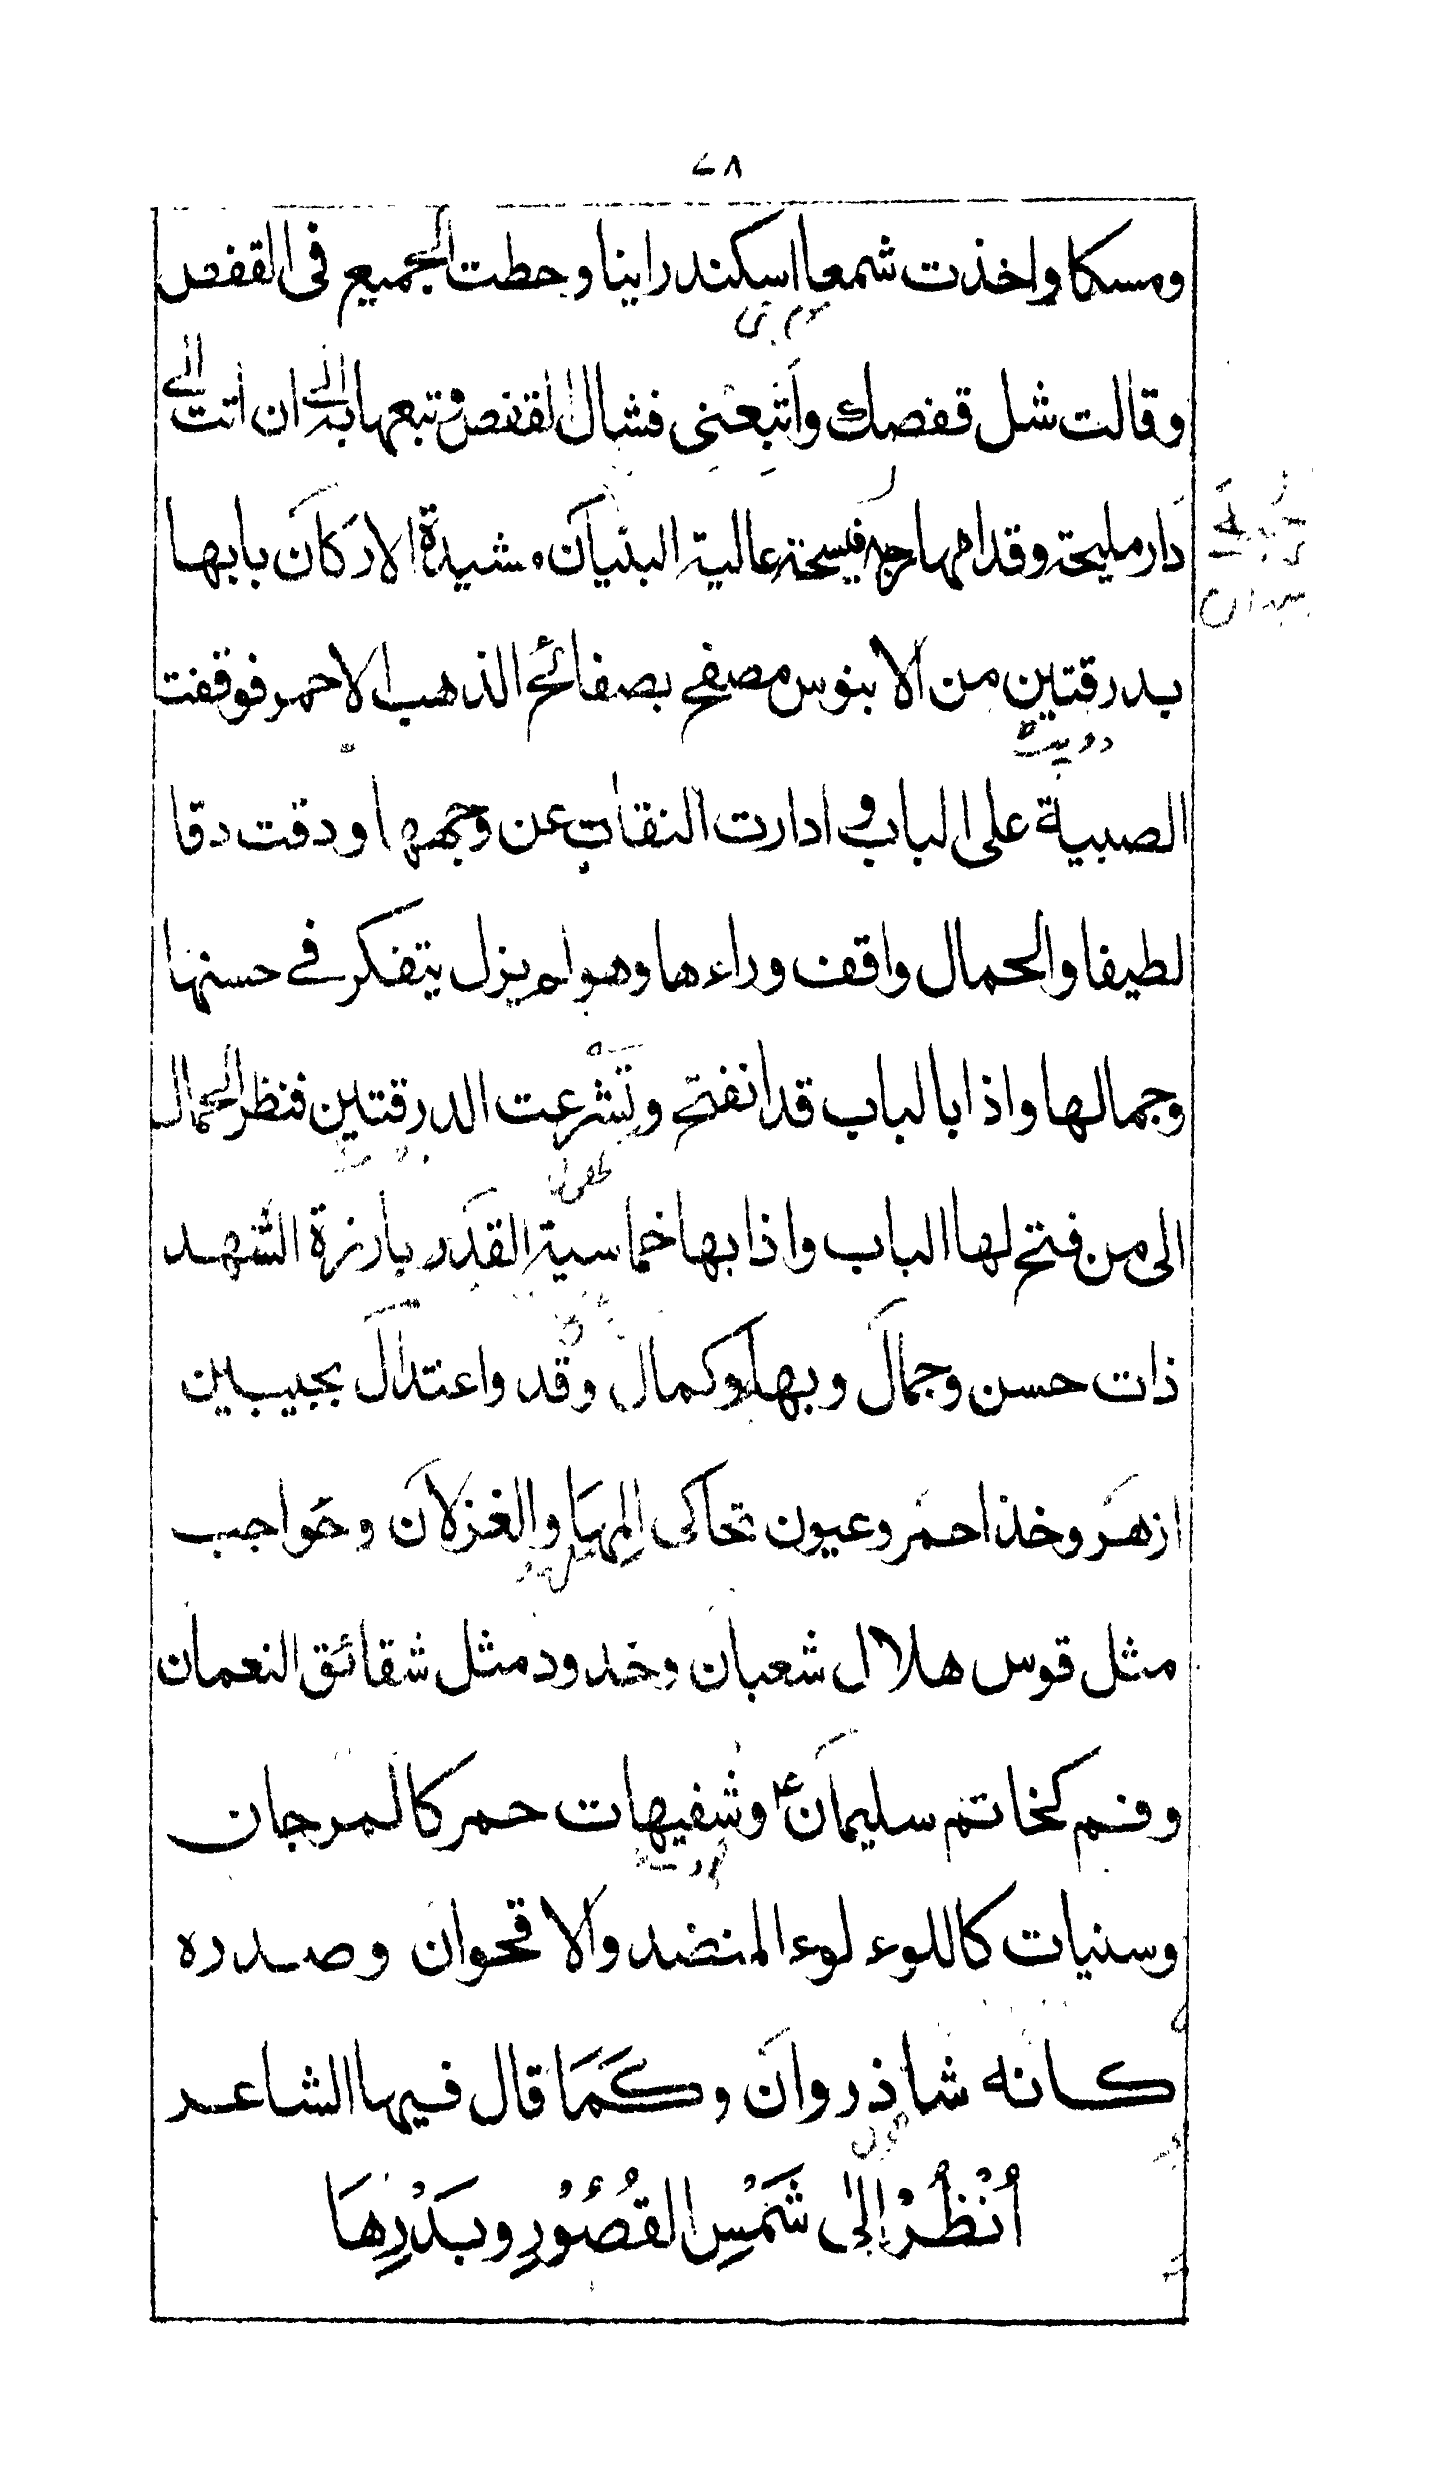 ٧٨
ومسكا واخذت شمعا اسكندرانيا وحطت الجميع فى القفص
وقالت شل قفصك واتبعنى فشال القفص وتبعها به الى ان اتت الى
دار مليحة وقدامها رحبه فيسحة عالية البنيان مشيدة الاركان بابها
بدرقتين من الابنوس مصفح بصفائح الذهب الاحمر فوقفت
الصبية على الباب و ادارت النقاب عن وجهها ودقت دقا
لطيفا والحمال واقف وراءها وهو لم يزل يتفكر فى حسنها
وجمالها واذا بالباب قد انفتح وتشرعت الدرقتين فنظر الحمال
الى من فتح لها الباب واذا بها خماسية القدر بارزة النهد
ذات حسن وجمال وبهاء وكمال وقد واعتدال بجبيبين
ازهر وخد احمر وعيون تحاكى المها والغزلان وحواجب
مثل قوس هلال شعبان وخدود مثل شقائق النعمان
وفم كخاتم سليمان وشفيهات حمر كالمرجان
وسنيات كاللوء لوء المنضد والاقحوان وصدره
كانه شاذروان وكما قال فيها الشاعر
اُنْظُرْ اِلٰى شَمْسِ القُصُوْرِ وبَدْرِهَا